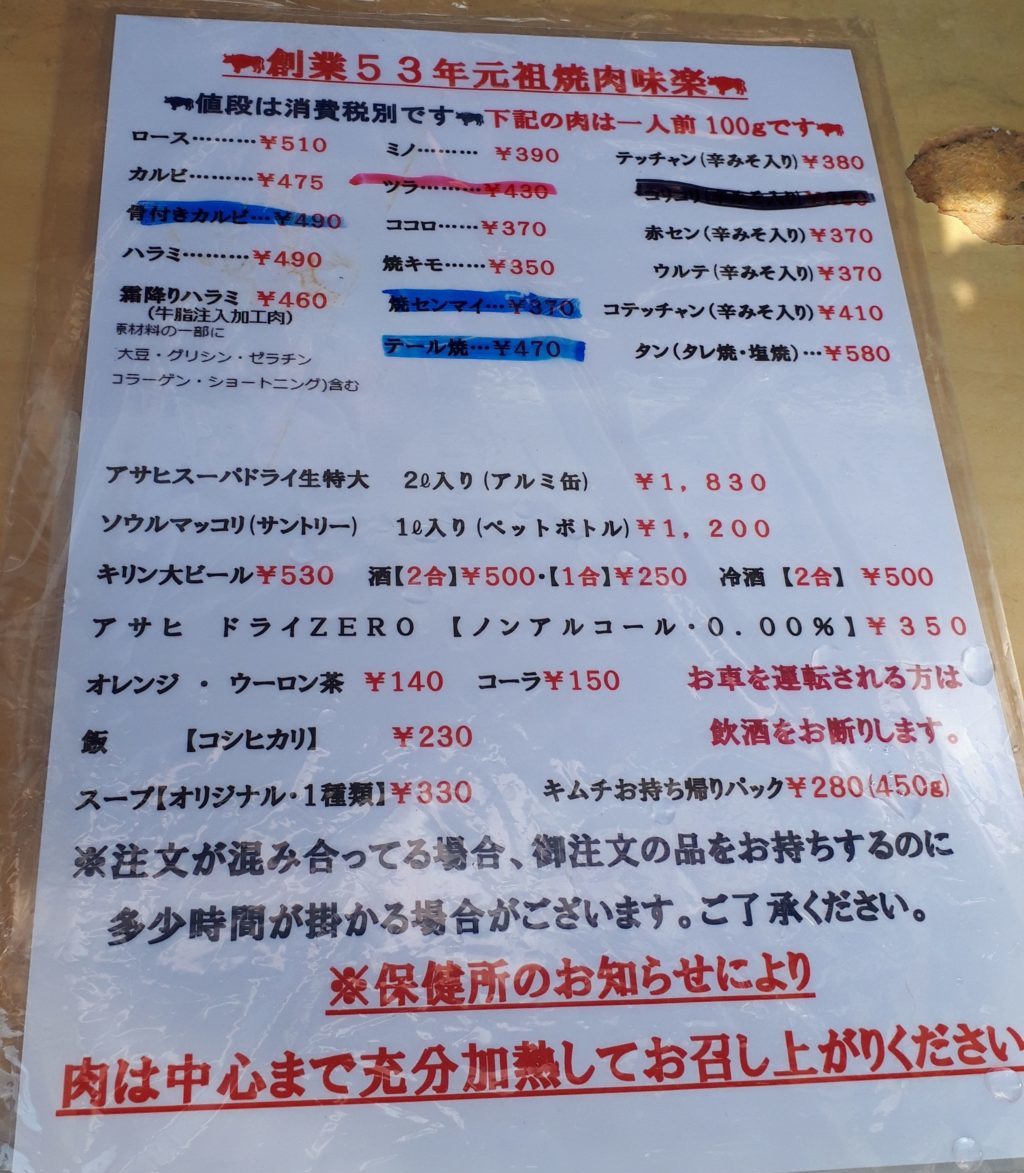 創業５３年元祖焼肉味楽
値段は消費税別です 下記の肉は一人前100gです
ロース………¥510
カルビ………¥475
骨付きカルビ…¥490
ハラミ………¥490
霜降りハラミ ¥460
(牛脂注入加工肉)
原材料の一部に
大豆・グリシン・ゼラチン
コラーゲン・ショートニング)含む
ミノ……… ¥390
ツラ………¥430
ココロ……¥370
焼キモ……¥350
焼センマイ…¥370
テール焼…¥470
テッチャン(辛みそ入り)¥380
赤セン(辛みそ入り)¥370
ウルテ(辛みそ入り)¥370
コテッチャン(辛みそ入り)¥410
タン(タレ焼・塩焼)…¥580
アサヒスーパドライ生特大 2ℓ入り(アルミ缶) ¥１，８３０
ソウルマッコリ(サントリー) 1ℓ入り(ペットボトル)¥１，２００
キリン大ビール¥530 酒【2合】¥500・【1合】¥250 冷酒【2合】¥500
アサヒ ドライＺＥＲＯ【ノンアルコール・０．００％】¥３５０
オレンジ ・ ウーロン茶 ¥140 コーラ¥150 お車を運転される方は
飲酒をお断りします。
飯 【コシヒカリ】 ¥230
スープ【オリジナル・1種類】¥330 キムチお持ち帰りパック¥280(450g)
※注文が混み合ってる場合、御注文の品をお持ちするのに
多少時間が掛かる場合がございます。ご了承ください。
※保健所のお知らせにより
肉は中心まで充分加熱してお召し上がりください